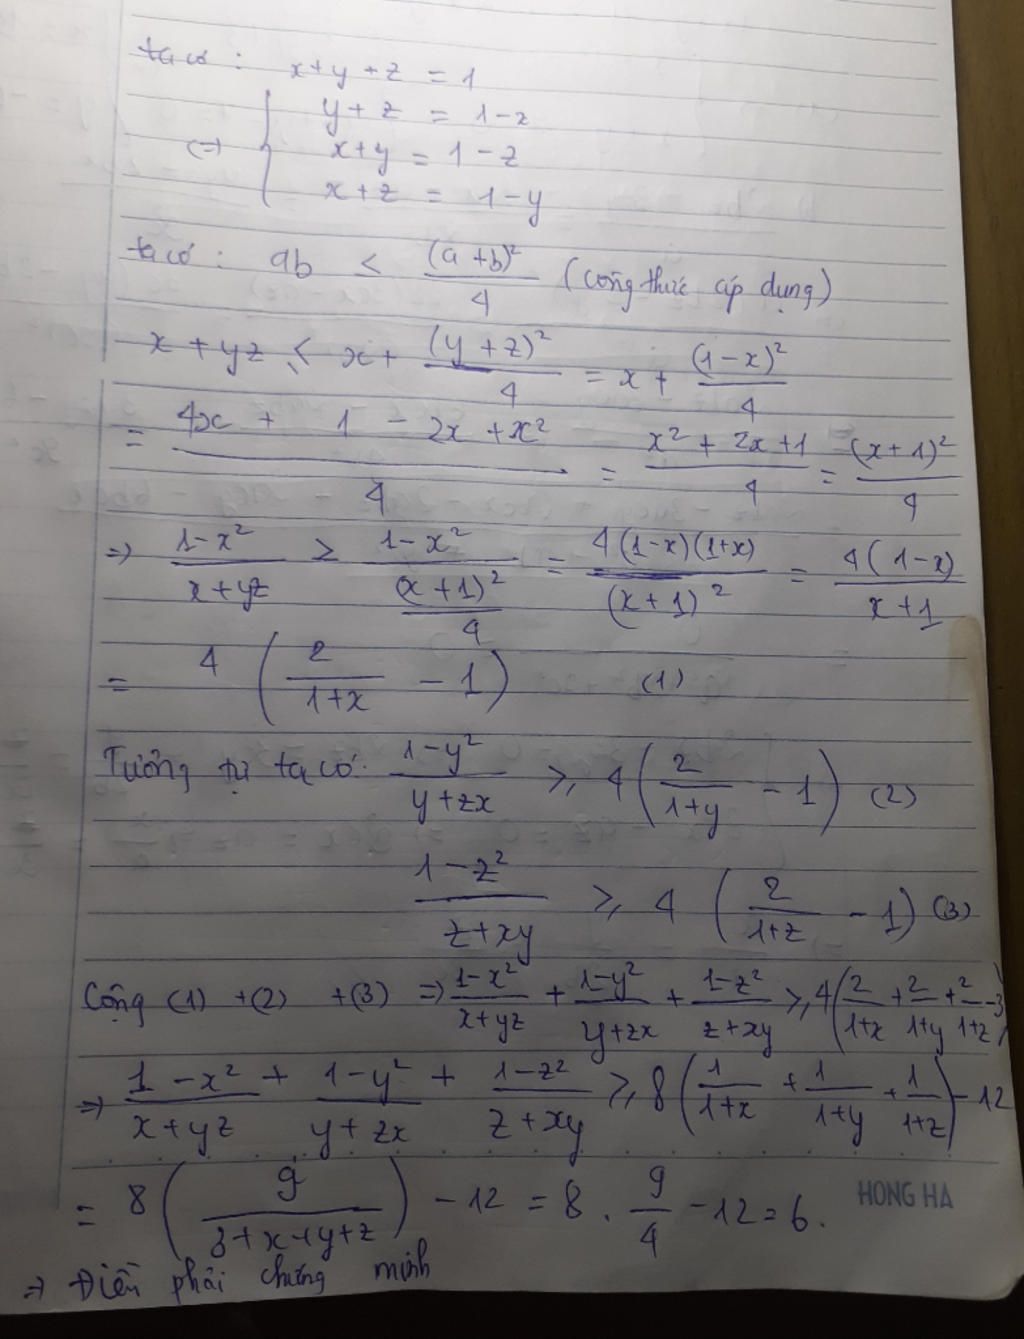 ta có : x+y+z = 1
y+z = 1-x
<=> x+y = 1-z
x+z = 1-y
ta có : ab < (a+b)²/4 (công thức áp dụng)
x+yz ≤ x + (y+z)²/4 = x + (1-x)²/4
= (4x + 1 - 2x + x²)/4 = (x²+2x+1)/4 = (x+1)²/4
=> (1-x²)/(x+yz) ≥ (1-x²)/((x+1)²/4) = 4(1-x)(1+x)/(x+1)² = 4(1-x)/(x+1)
= 4(2/(1+x) - 1) (1)
Tương tự ta có (1-y²)/(y+zx) ≥ 4(2/(1+y) - 1) (2)
(1-z²)/(z+xy) ≥ 4(2/(1+z) - 1) (3)
Cộng (1) +(2) +(3) => (1-x²)/(x+yz) + (1-y²)/(y+zx) + (1-z²)/(z+xy) ≥ 4(2/(1+x) + 2/(1+y) + 2/(1+z) - 3)
=> (1-x²)/(x+yz) + (1-y²)/(y+zx) + (1-z²)/(z+xy) ≥ 8(1/(1+x) + 1/(1+y) + 1/(1+z)) - 12
= 8(9/(3+x+y+z)) - 12 = 8 . 9/4 - 12 = 6.
HONG HA
=> Điều phải chứng minh